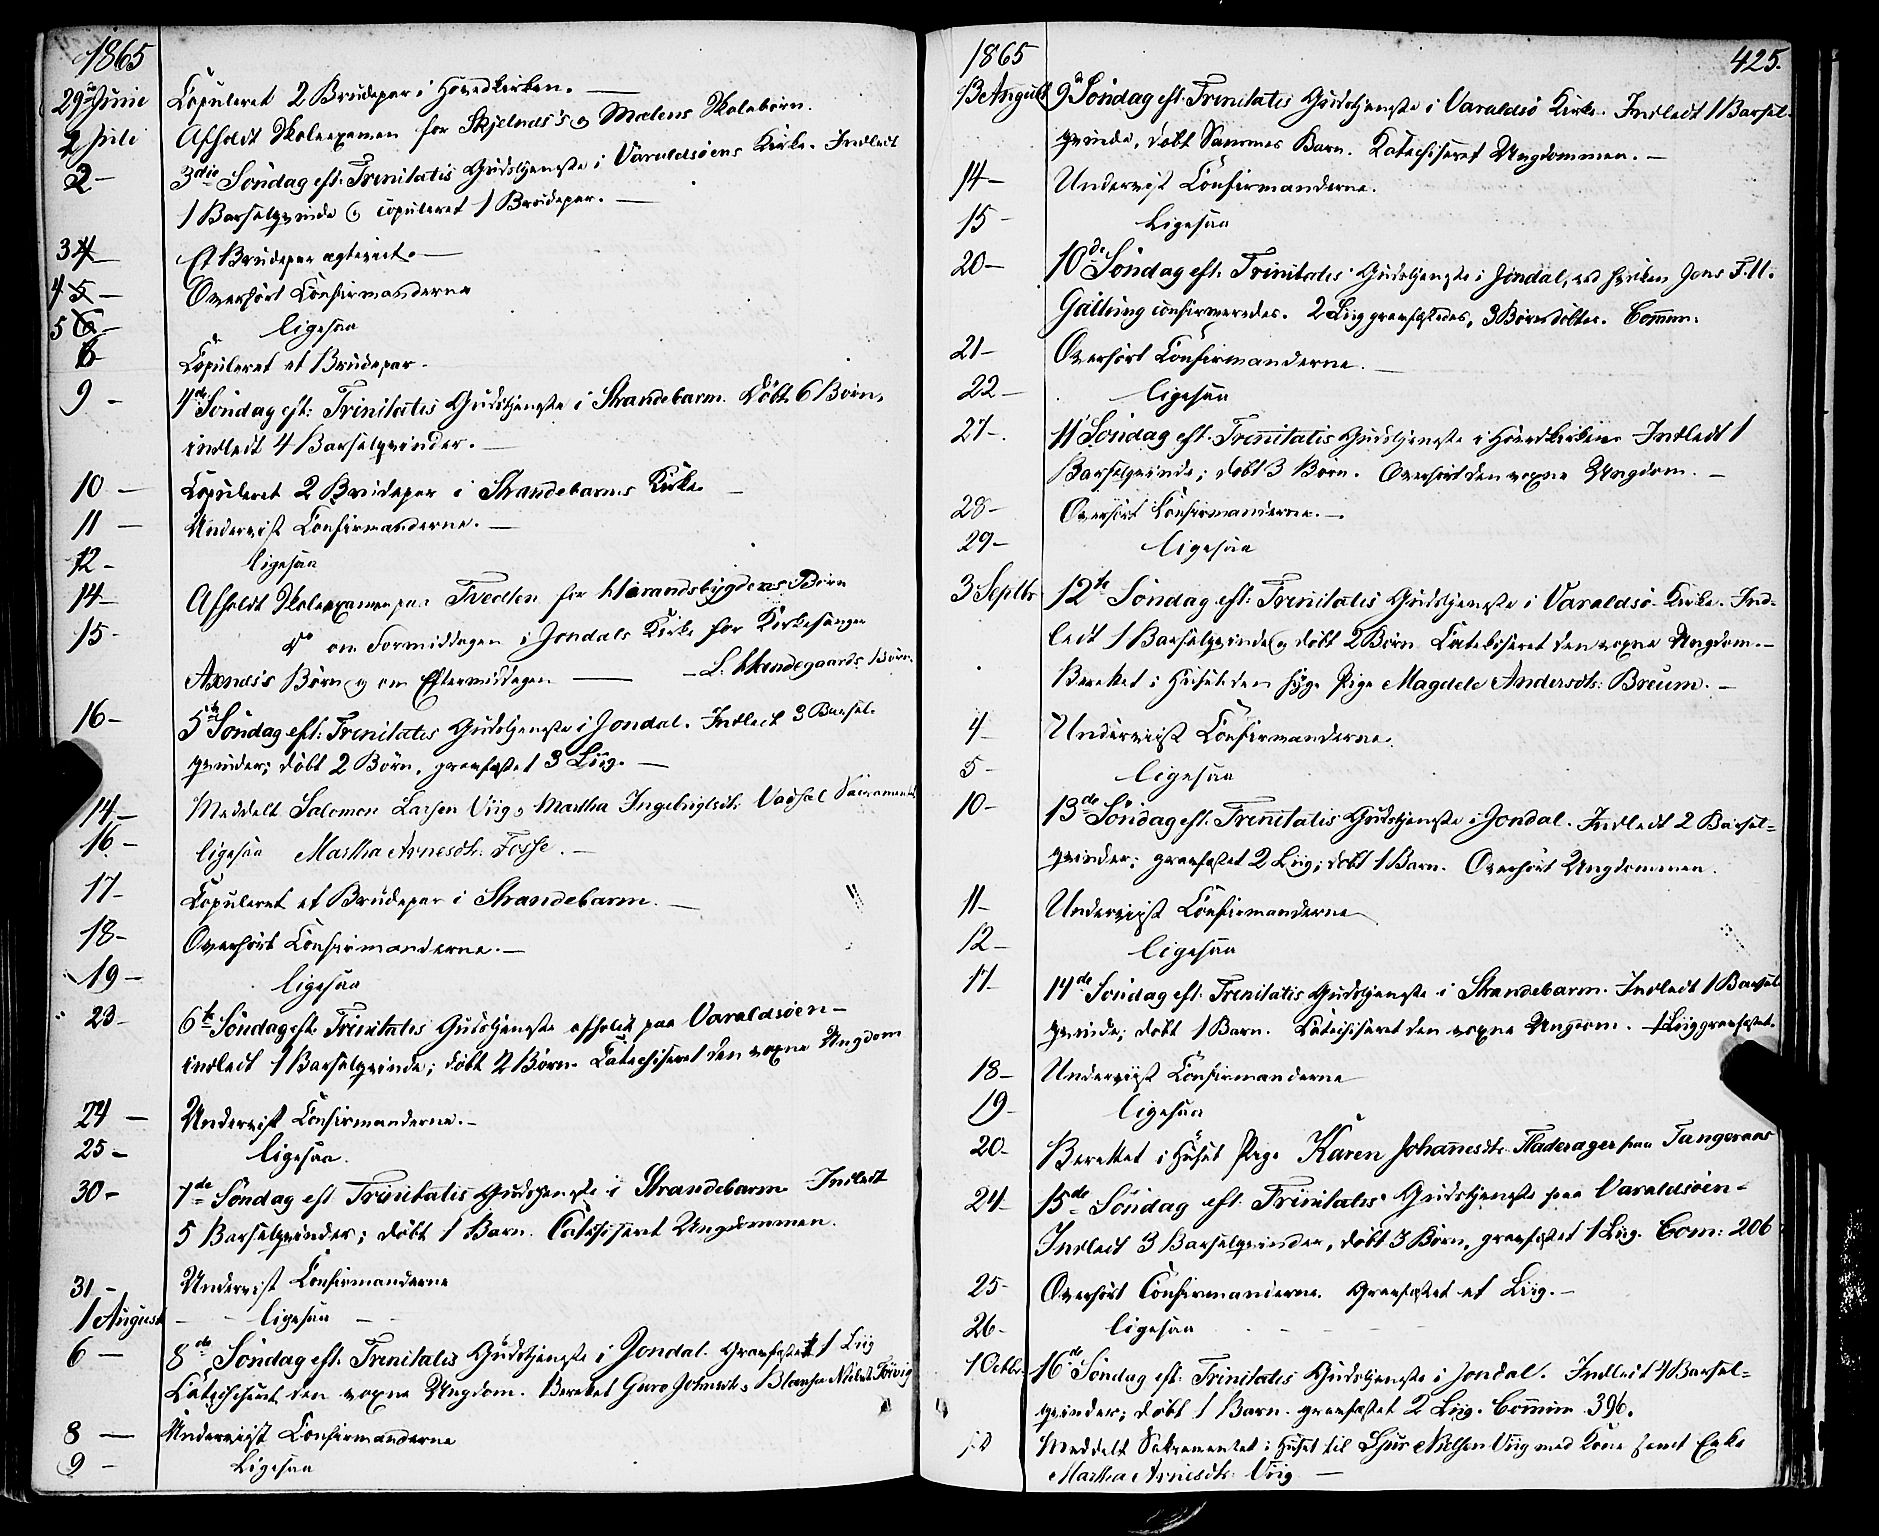 1865
29de Junie Copuleret 2 Brudepar i Hovedkirken. —
2 Juli Afholdt Skoleexamen for Skjelnæs's og Mælens Skolebørn.
2 — 3die Søndag eft: Trinitatis Gudstjeneste i Varaldsøens Kirke. Indledt
1 Barselqvinde og copuleret 1 Brudepar. —
3 4 — Et Brudepar ægteviet. —
4 5 — Overhørt Confirmanderne
5 6 — ligesaa
6 Copuleret et Brudepar.
9 — 4de Søndag eft: Trinitatis Gudstjeneste i Strandebarm. Døbt 6 Børn,
indledt 4 Barselqvinder. —
10 — Copuleret 2 Brudepar i Strandebarms Kirke. —
11 — Underviist Confirmanderne. —
12 — ligesaa
14 — Afholdt Skoleexamen paa Tvedten for Børn
15 — do om Formiddagen i Jondals Kirke for Kirkesanger
Axnæs's Børn og om Eftermiddagen — — L. Børn.
16 — 5te Søndag eft: Trinitatis Gudstjeneste i Jondal. Indledt 3 Barsel-
qvinder; døbt 2 Børn, græsfæstet 3 Liig. —
14 — Meddelt Salomon Larsen Viig og Martha Ingebrigtsdtr. Vadsel Sacramentet
16 — ligesaa Martha Arnesdtr. Fosse. —
17 — Copuleret et Brudepar i Strandebarm. —
18 — Overhørt Confirmanderne. —
19 — ligesaa
23 — 6te Søndag eft. Trinitatis Gudstjeneste afholdt paa Varaldsøen —
indledt 1 Barselqvinde; døbt 2 Børn. Catechiseret den voxne Ungdom
24 — Underviist Confirmanderne. —
25 — ligesaa.
30 — 7de Søndag eft Trinitatis Gudstjeneste i Strandebarm Indledt
5 Barselqvinder; døbt 1 Barn. Catechiseret Ungdommen.
31 — Underviist Confirmanderne
1 August — ligesaa —
6 — 8de Søndag eft. Trinitatis Gudstjeneste i Jondal. Græsfæstet 1 Liig
Catechiseret den voxne Ungdom. Berettet Guro Johnsdtr.
8 — Underviist Confirmanderne
9 — Ligesaa
1865 425.
13 August 9de Søndag eft. Trinitatis Gudstjeneste i Varaldsø Kirke. Indledt 1 Barsel-
qvinde, døbt Sammes Barn. Katechiseret Ungdommen. —
14 — Underviist Confirmanderne.
15 — Ligesaa
20 — 10de Søndag eft. Trinitatis Gudstjeneste i Jondal, ved hvilken Jens T. M.
Galtung confirmeredes. 2 Liig græsfæstedes, 3 Børn døbtes. Comm:
21 — Overhørt Confirmanderne. —
22 — ligesaa
27 — 11 Søndag eft. Trinitatis Gudstjeneste i Hovedkirken Indledt 1
Barselqvinde; døbt 3 Børn. Overhørt den voxne Ungdom. —
28 — Overhørt Confirmanderne. —
29 — ligesaa
3 Septbr 12te Søndag eft: Trinitatis Gudstjeneste i Varaldsø Kirke. Ind-
ledt 1 Barselqvinde og døbt 2 Børn Catekiseret den voxne Ungdom. —
Berettet i Huset den syge Pige Magdele Andersdtr: Breum. —
4 — Underviist Confirmanderne.
5 — ligesaa
10 — 13de Søndag eft. Trinitatis Gudstjeneste i Jondal. Indledt 2 Barsel-
qvinder; græsfæstet 2 Liig; døbt 1 Barn. Overhørt Ungdommen.
11 — Underviist Confirmanderne
12 — ligesaa
17 — 14de Søndag eft. Trinitatis Gudstjeneste i Strandebarm. Indledt 1 Barsel
qvinde; døbt 1 Barn. Catechiseret den voxne Ungdom. 1 Liig græsfæstet.
18 — Underviist Confirmanderne
19 — ligesaa
20 — Berettet i Huset Pige Karen Johannesdtr. Fladerager paa Tangeraas
24 — 15de Søndag eft. Trinitatis Gudstjeneste paa Varaldsøen —
Indledt 3 Barselqvinder, døbt 3 Børn, græsfæstet 1 Liig. Com: 206
25 — Overhørt Confirmanderne. Græsfæstet et Liig. —
26 — ligesaa
1 Octbr. 16de Søndag eft: Trinitatis Gudstjeneste i Jondal. Indledt 4 Barsel-
qvinder; døbt 1 Barn. græsfæstet 2 Liig. Commun 396.
s. D Meddelt Sakramentet i Huset til Sjur Nielsen Viig med Kone samt Enke
Martha Arnesdtr. Viig —